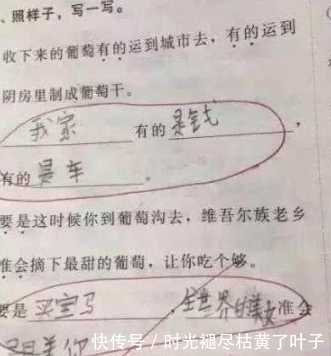 、照样子,写一写。
收下来的葡萄有的运到城市去,有的运到
阴房里制成葡萄干。
我家 有的 是钱,
有的 是车。
要是这时候你到葡萄沟去,维吾尔族老乡
准会摘下最甜的葡萄,让你吃个够。
要是 买宝马,全世界的美女 准会
快传号/时光褪尽枯黄了叶子